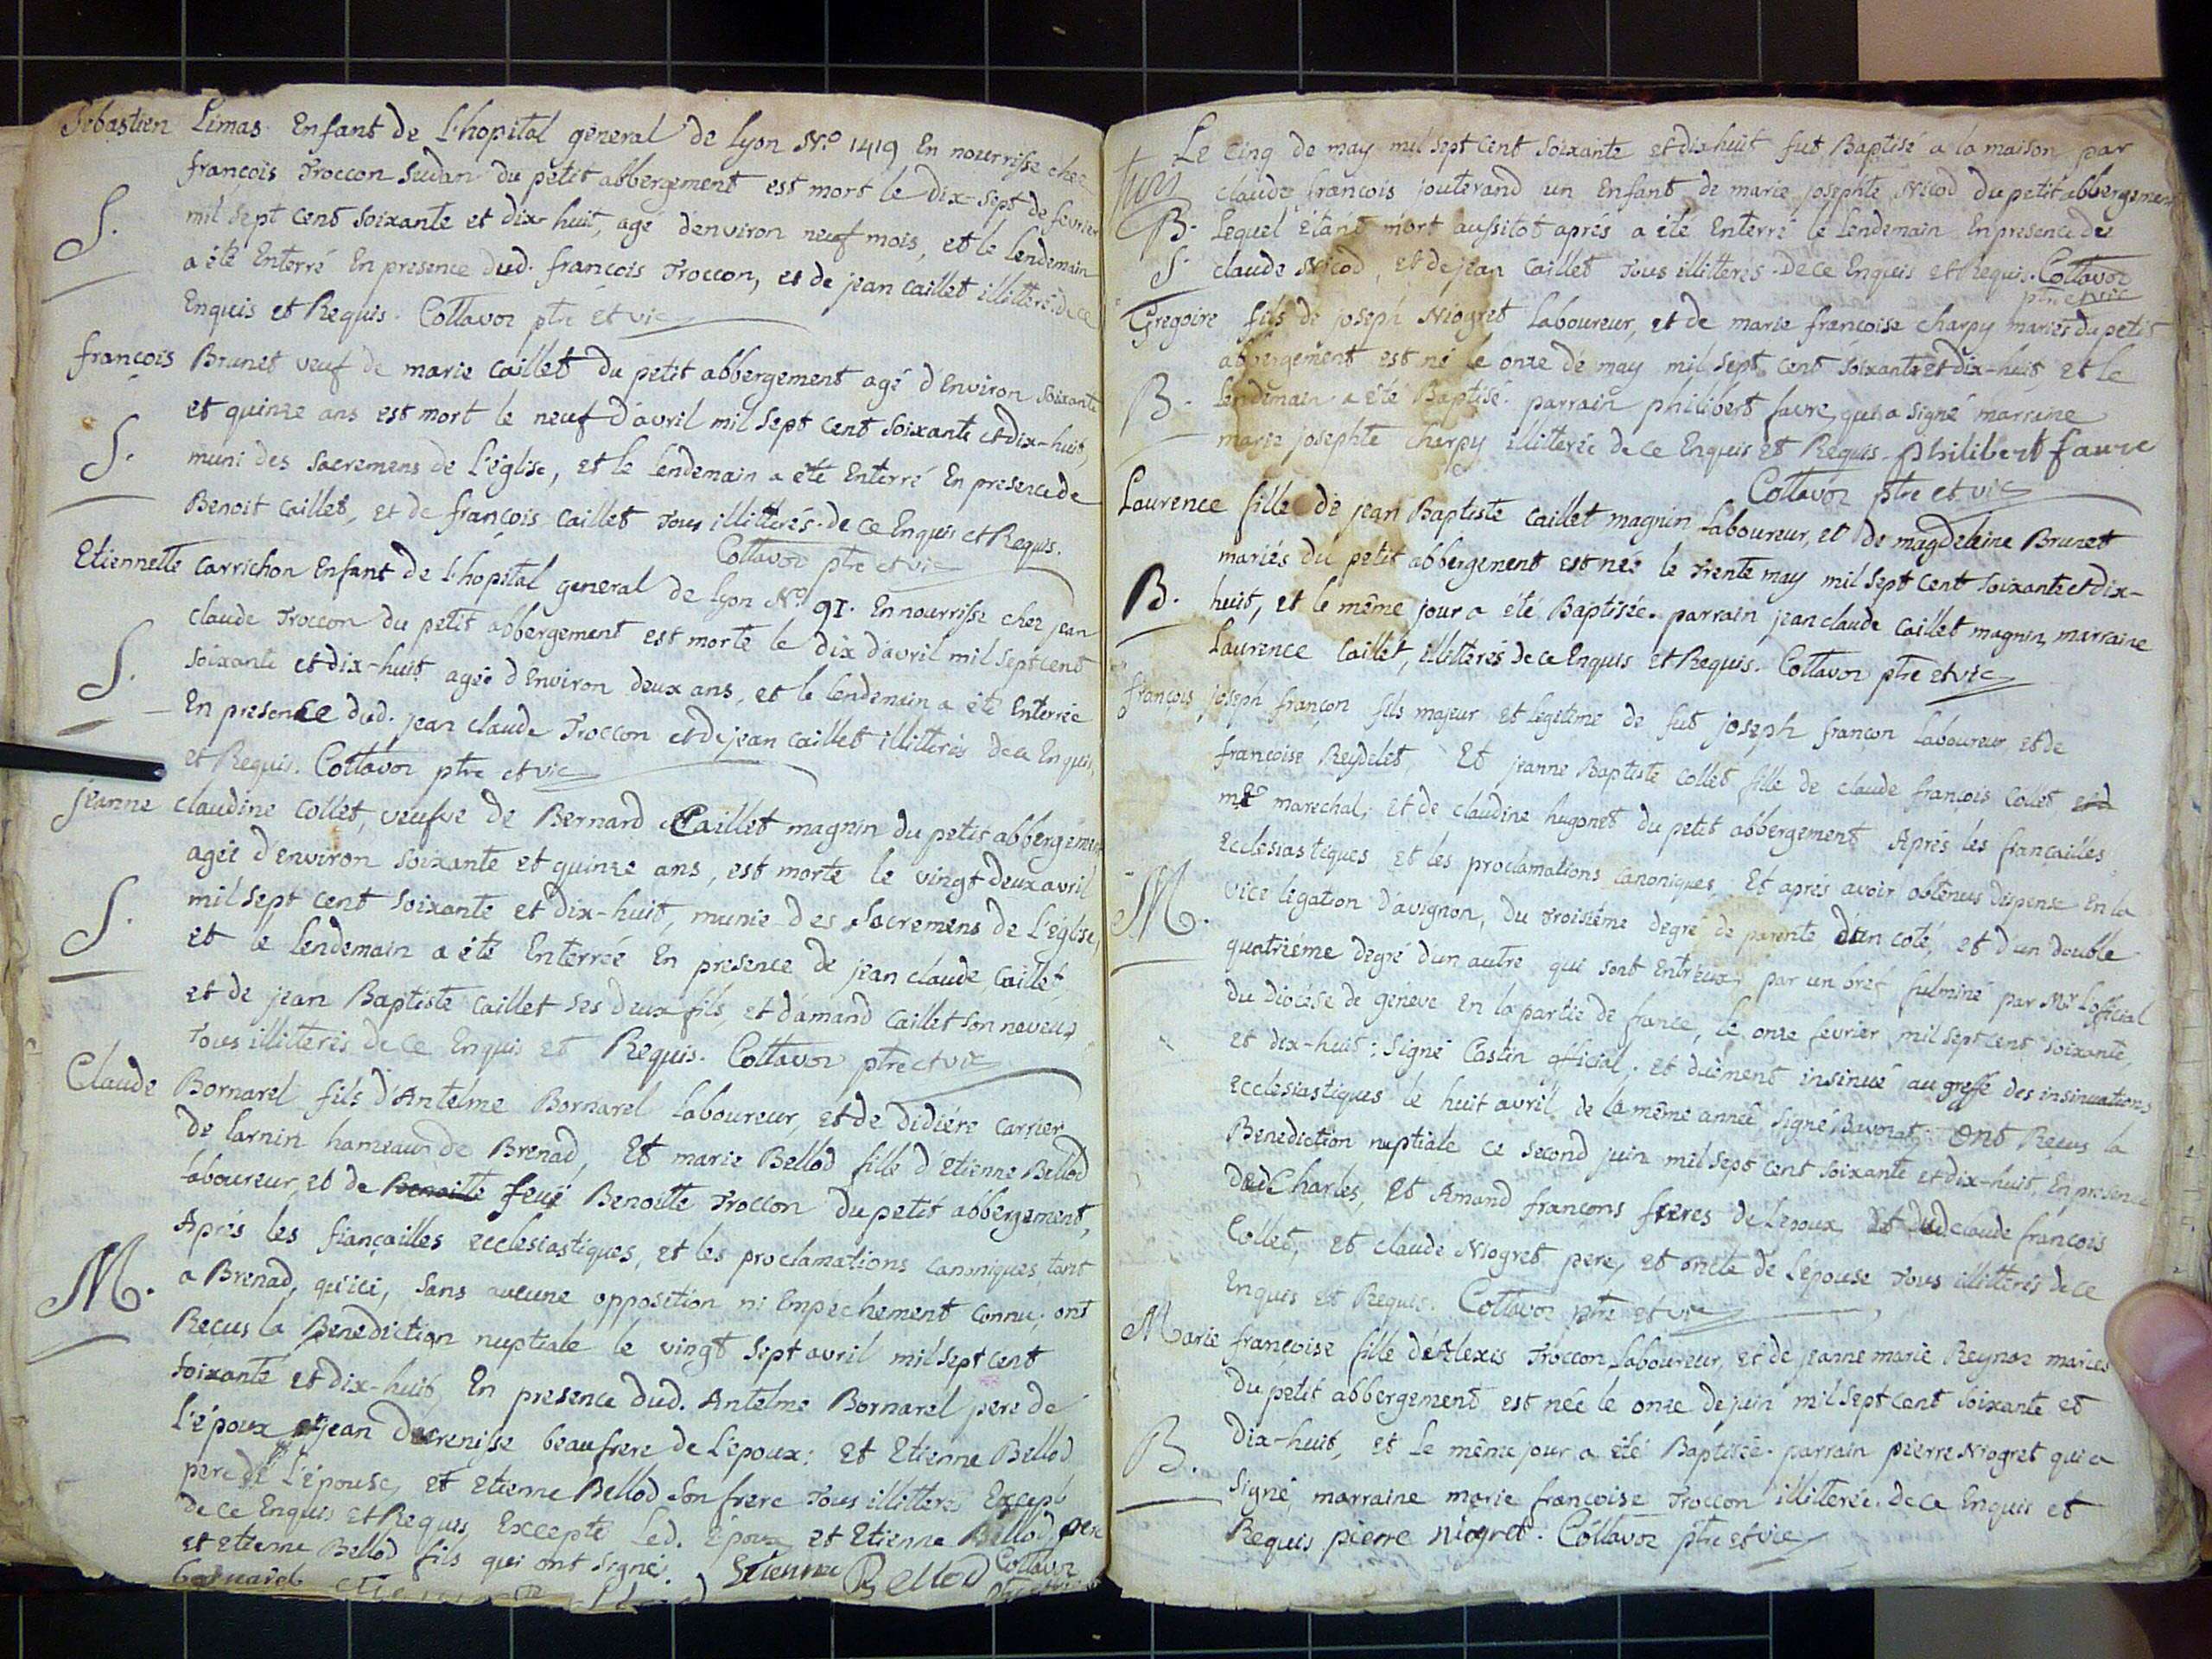 Sébastien Limas Enfant de L'hopital général de Lyon N.º 1419 En nourrisse chez
françois Troccon Sudan du petit abbergement est mort le dix-sept de fevrier
S. mil sept cent soixante et dix-huit, agé denviron neuf mois, et le Lendemain
a été Enterré En presence dud. françois Troccon, et de jean caillet illitteré. de ce
Enquis et Requis. Cottavoz ptre et vic
françois Brunet veuf de marie caillet du petit abbergement agé d'Environ soixante
et quinze ans est mort le neuf d'avril mil sept cent soixante et dix-huit,
S. muni des sacremens de L'église, et le Lendemain a été Enterré En presence de
Benoit caillet, et de françois caillet tous illitterés. de ce Enquis et Requis.
Cottavoz ptre et vic
Etiennette Carrichon Enfant de L'hopital general de Lyon N.º 91. En nourrisse chez jean
claude Troccon du petit abbergement est morte le dix d'avril mil sept cent
S. soixante et dix-huit agée d'Environ deux ans, et le Lendemain a été Enterrée
En presence dud. jean claude Troccon et de jean caillet illitterés de ce Enquis,
et Requis. Cottavoz ptre et vic
jeanne claudine collet, veufve de Bernard Caillet magnin du petit abbergement
agée d'environ soixante et quinze ans, est morte le vingt deux avril
S. mil sept cent soixante et dix-huit, munie des sacremens de L'église,
et le Lendemain a été Enterrée En presence de jean claude caillet,
et de jean Baptiste caillet ses deux fils, et d'amand caillet son neveux
tous illitterés de ce Enquis et Requis. Cottavoz ptre et vic
Claude Bornarel fils d'Antelme Bornarel Laboureur, et de didiére carrier
de Larnin hameau de Brenad, Et marie Bellod fille d'Etienne Bellod
Laboureur, et de Benoitte feue Benoitte Troccon du petit abbergement,
Aprés les fiançailles ecclesiastiques, et les proclamations canoniques, tant
M. a Brenad, qu'ici, sans aucune opposition ni Empechement connu; ont
Reçus la Benediction nuptiale le vingt sept avril mil sept cent
soixante et dix-huit, En presence dud. Antelme Bornarel pere de
L'époux et jean beaufrere de L'époux; Et Etienne Bellod
pere de L'épouse, et Etienne Bellod son frere tous illitterés Except
de ce Enquis et Requis, Excepté Led. Epoux et Etienne Bellod pere
et Etienne Bellod fils qui ont signé. Etienne Bellod Cottavoz
bornarel
Le cinq de may mil sept cent soixante et dix huit fut Baptisé a la maison par
claude françois jouterand un Enfant de marie josephte Nicod du petit abbergement
B. Lequel étant mort aussitot aprés a été Enterré le Lendemain En presence de
S. claude Nicod, et de jean caillet tous illitterés. de ce Enquis et Requis. Cottavoz
ptre et vic
Gregoire fils de joseph Niogret Laboureur, et de marie françoise charpy mariés du petit
abbergement est né le onze de may mil sept cent soixante et dix-huit et le
B. Lendemain a été Baptisé. parrain philibert favre, qui a signé marraine
marie josephte charpy illitterée de ce Enquis et Requis. philibert favre
Cottavoz ptre et vic
Laurence fille de jean Baptiste caillet magnin Laboureur, et de magdeleine Brunet
mariés du petit abbergement est née le trente may mil sept cent soixante et dix-
B. huit, et le même jour a été Baptisée. parrain jean claude caillet magnin, marraine
Laurence caillet, illitterés de ce Enquis et Requis. Cottavoz ptre et vic
françois joseph françon fils majeur et legitime de fut joseph françon Laboureur, et de
françoise Reydelet, Et jeanne Baptiste collet fille de claude françois collet et d
mᵉ marechal, et de claudine hugonet du petit abbergement Aprés les françailles
Ecclesiastiques, et les proclamations canoniques, Et aprés avoir obtenus dispense En la
M. vice legation d'avignon, du troisiéme degré de parenté d'un coté, et d'un double
quatriéme degré d'un autre qui sont Entr'eux; par un bref fulminé par Mr L'official
du diocése de genéve En la partie de france, le onze fevrier mil sept cent soixante,
et dix-huit; signé Castin official; et duement insinué au greffe des insinuations
ecclesiastiques le huit avril de la même année signé Bavozat; ont Reçus la
Benediction nuptiale ce second juin mil sept cent soixante et dix-huit, En presence
de Charles, et Amand françons freres de L'époux Et dud claude françois
Collet, et claude Niogret pere, et oncle de L'epouse tous illitterés de ce
Enquis et Requis. Cottavoz ptre et vic
Marie françoise fille d'Alexis Troccon Laboureur, et de jeanne marie Reynoz mariés
du petit abbergement est née le onze de juin mil sept cent soixante et
B. dix-huit, et Le même jour a été Baptisée. parrain pierre Niogret qui a
signé, marraine marie françoise Troccon illitterée. de ce Enquis et
Requis pierre niogret. Cottavoz ptre et vic